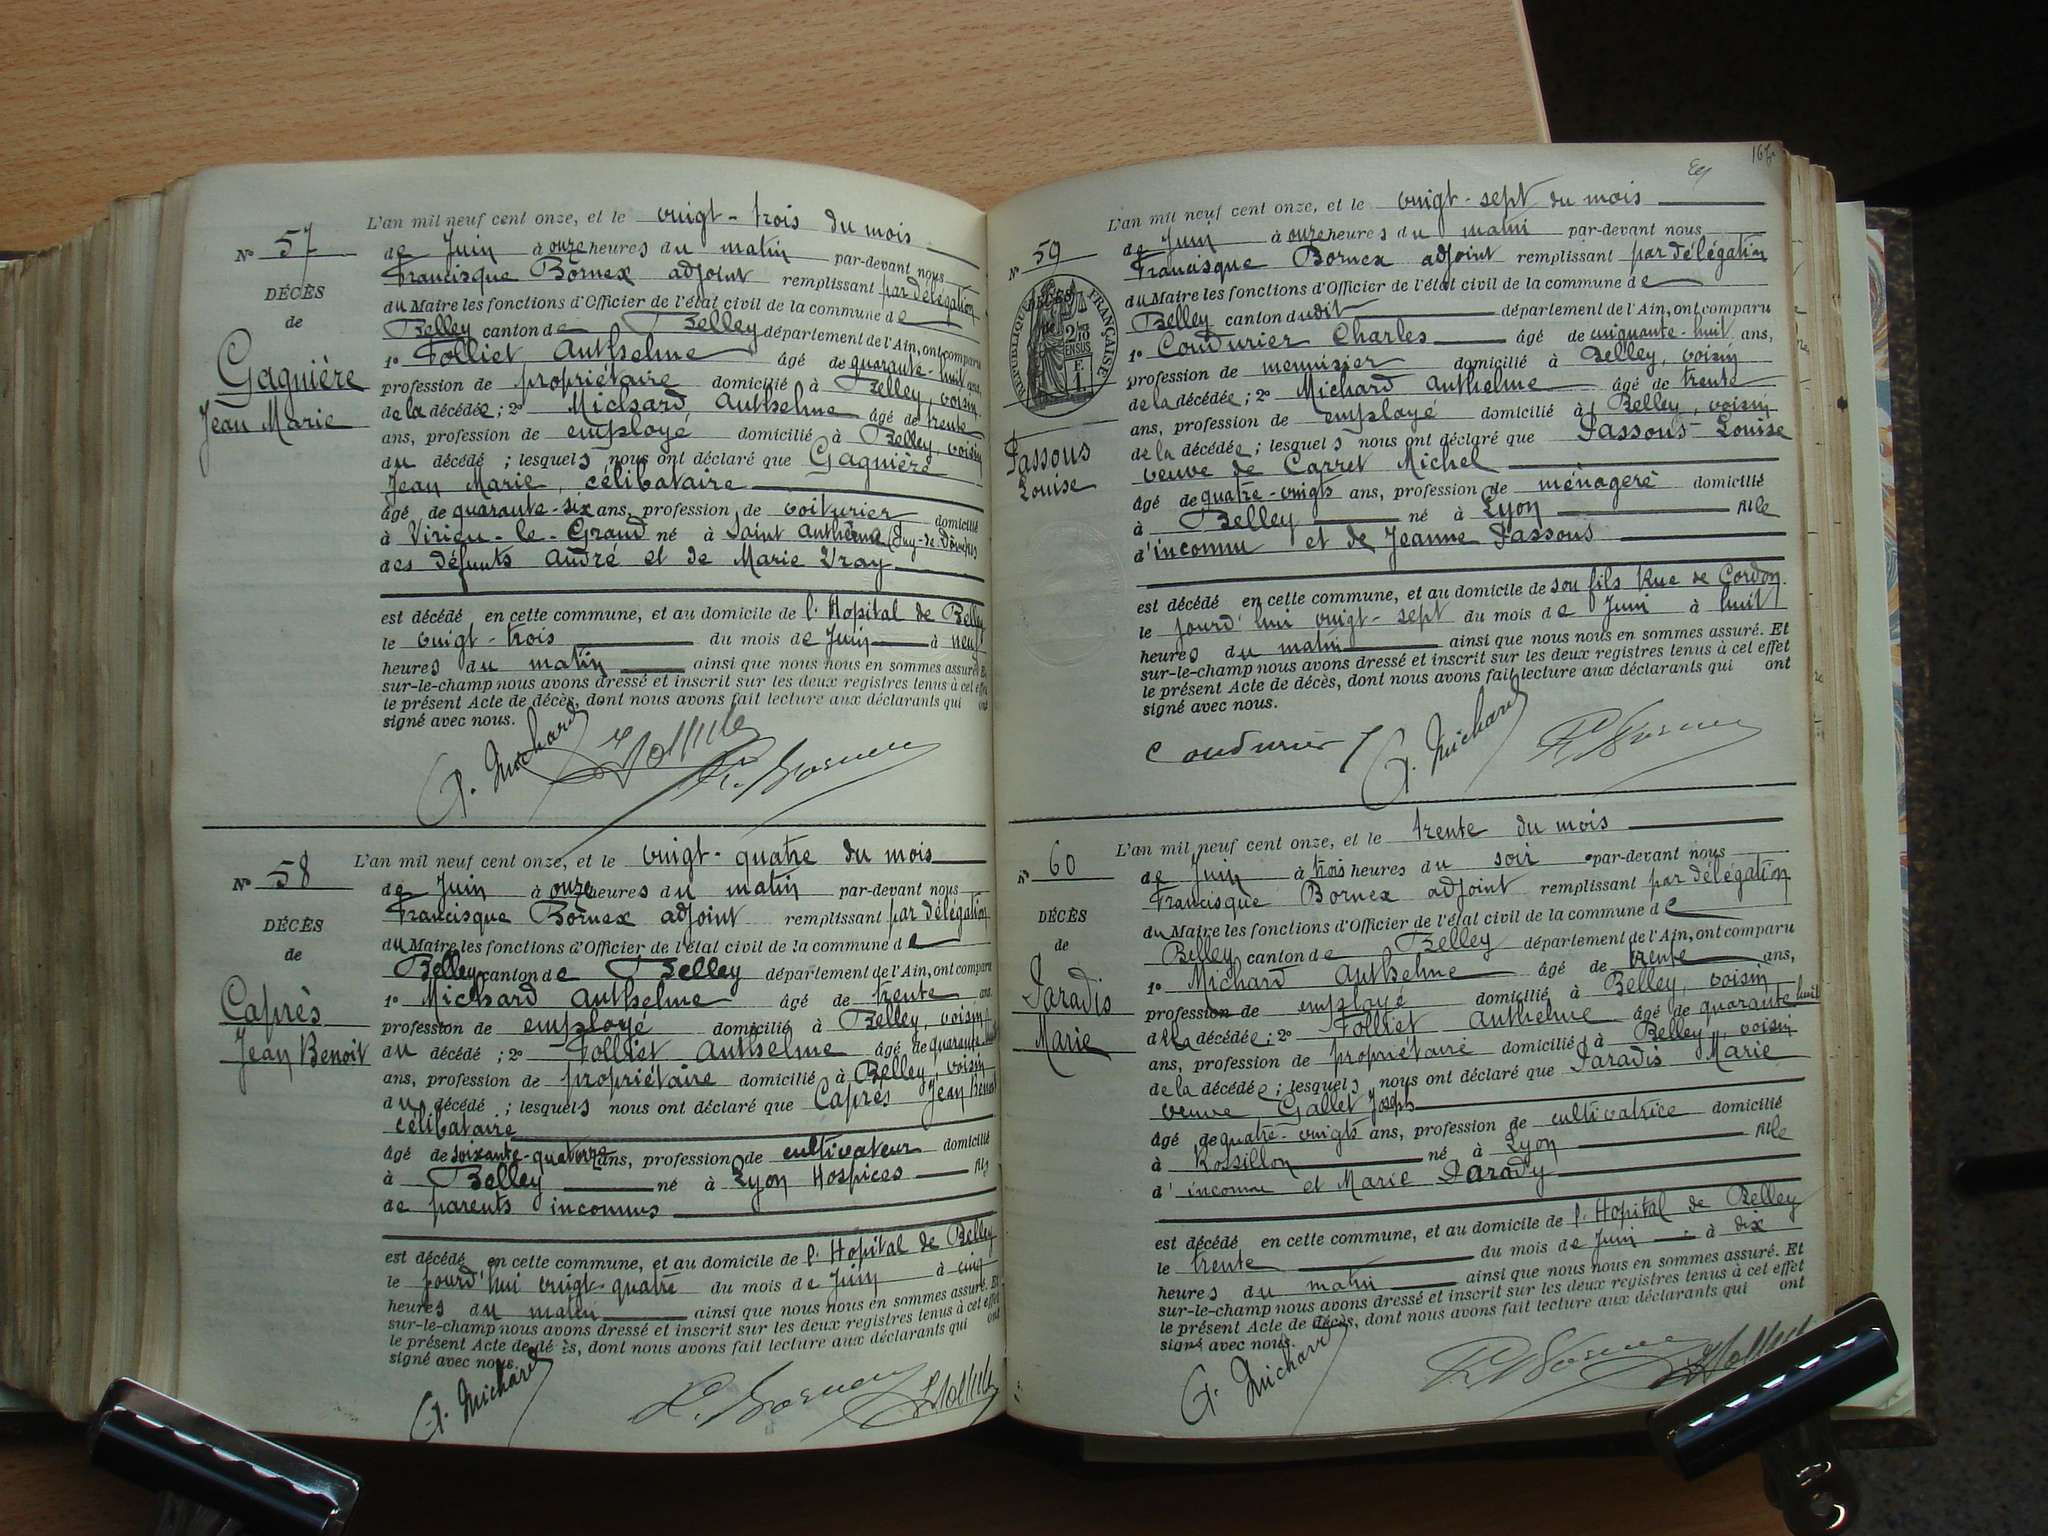 L'an mil neuf cent onze, et le vingt-trois du mois
N° 57
de Juin à onze heures du matin par-devant nous
Francisque Bornex adjoint remplissant par délégation
DÉCÈS
du Maire les fonctions d'Officier de l'état civil de la commune de
de
Belley canton de Belley département de l'Ain, ont comparu
1° Folliet Anthelme âgé de quarante-huit ans,
Gagnière
profession de propriétaire domicilié à Belley, voisin
Jean Marie
de la décédée; 2° Michard Anthelme âgé de trente
ans, profession de employé domicilié à Belley, voisin
du décédé ; lesquels nous ont déclaré que Gagnière
Jean Marie, célibataire
âgé de quarante-six ans, profession de voiturier domicilié
à Virieu-le-Grand né à Saint Anthème (Puy-de-Dôme) fils
des défunts André et de Marie Vray
est décédé en cette commune, et au domicile de l'Hopital de Belley
le vingt-trois du mois de Juin à neuf
heures du matin ainsi que nous nous en sommes assuré. Et
sur-le-champ nous avons dressé et inscrit sur les deux registres tenus à cet effet
le présent Acte de décès, dont nous avons fait lecture aux déclarants qui ont
signé avec nous.
A. Michard Folliet F. Bornex
L'an mil neuf cent onze, et le vingt-quatre du mois
N° 58
de Juin à onze heures du matin par-devant nous
Francisque Bornex adjoint remplissant par délégation
DÉCÈS
du Maire les fonctions d'Officier de l'état civil de la commune de
de
Belley canton de Belley département de l'Ain, ont comparu
1° Michard Anthelme âgé de trente ans
Caprès
profession de employé domicilié à Belley, voisin
Jean Benoit
du décédé ; 2° Folliet Anthelme âgé de quarante huit
ans, profession de propriétaire domicilié à Belley, voisin
du décédé ; lesquels nous ont déclaré que Caprès Jean Benoit
célibataire
âgé de soixante-quatorze ans, profession de cultivateur domicilié
à Belley né à Lyon Hospices fils
de parents inconnus
est décédé en cette commune, et au domicile de l'Hopital de Belley
le jourd'hui vingt-quatre du mois de Juin à cinq
heures du matin ainsi que nous nous en sommes assuré. Et
sur-le-champ nous avons dressé et inscrit sur les deux registres tenus à cet effet
le présent Acte de décès, dont nous avons fait lecture aux déclarants qui ont
signé avec nous.
A. Michard F. Bornex Folliet
L'an mil neuf cent onze, et le vingt-sept du mois
N° 59
de Juin à onze heures du matin par-devant nous
Francisque Bornex adjoint remplissant par délégation
DÉCÈS
RÉPUBLIQUE FRANÇAISE
2/10 EN SUS
F. 1
du Maire les fonctions d'Officier de l'état civil de la commune de
Belley canton dudit département de l'Ain, ont comparu
1° Coudurier Charles âgé de cinquante-huit ans,
profession de menuisier domicilié à Belley, voisin
de la décédée ; 2° Michard Anthelme âgé de trente
ans, profession de employé domicilié à Belley, voisin
Passous
Louise
de la décédée ; lesquels nous ont déclaré que Passous Louise
veuve de Carret Michel
âgé de quatre-vingts ans, profession de ménagère domicilié
à Belley né à Lyon fille
d'inconnu et de Jeanne Passous
est décédé en cette commune, et au domicile de son fils Rue de Cordon
le jourd'hui vingt-sept du mois de Juin à huit
heures du matin ainsi que nous nous en sommes assuré. Et
sur-le-champ nous avons dressé et inscrit sur les deux registres tenus à cet effet
le présent Acte de décès, dont nous avons fait lecture aux déclarants qui ont
signé avec nous.
Coudurier A. Michard F. Bornex
L'an mil neuf cent onze, et le trente du mois
N° 60
de Juin à trois heures du soir par-devant nous
Francisque Bornex adjoint remplissant par délégation
DÉCÈS
du Maire les fonctions d'Officier de l'état civil de la commune de
de
Belley canton de Belley département de l'Ain, ont comparu
1° Michard Anthelme âgé de trente ans,
Paradis
profession de employé domicilié à Belley, voisin
Marie
de la décédée ; 2° Folliet Anthelme âgé de quarante huit
ans, profession de propriétaire domicilié à Belley, voisin
de la décédée ; lesquels nous ont déclaré que Paradis Marie
veuve Gallet Joseph
âgé de quatre-vingts ans, profession de cultivatrice domicilié
à Rossillon né à Lyon fille
d'inconnu et Marie Parady
est décédé en cette commune, et au domicile de l'Hopital de Belley
le trente du mois de Juin à dix
heures du matin ainsi que nous nous en sommes assuré. Et
sur-le-champ nous avons dressé et inscrit sur les deux registres tenus à cet effet
le présent Acte de décès, dont nous avons fait lecture aux déclarants qui ont
signé avec nous.
A. Michard F. Bornex Folliet